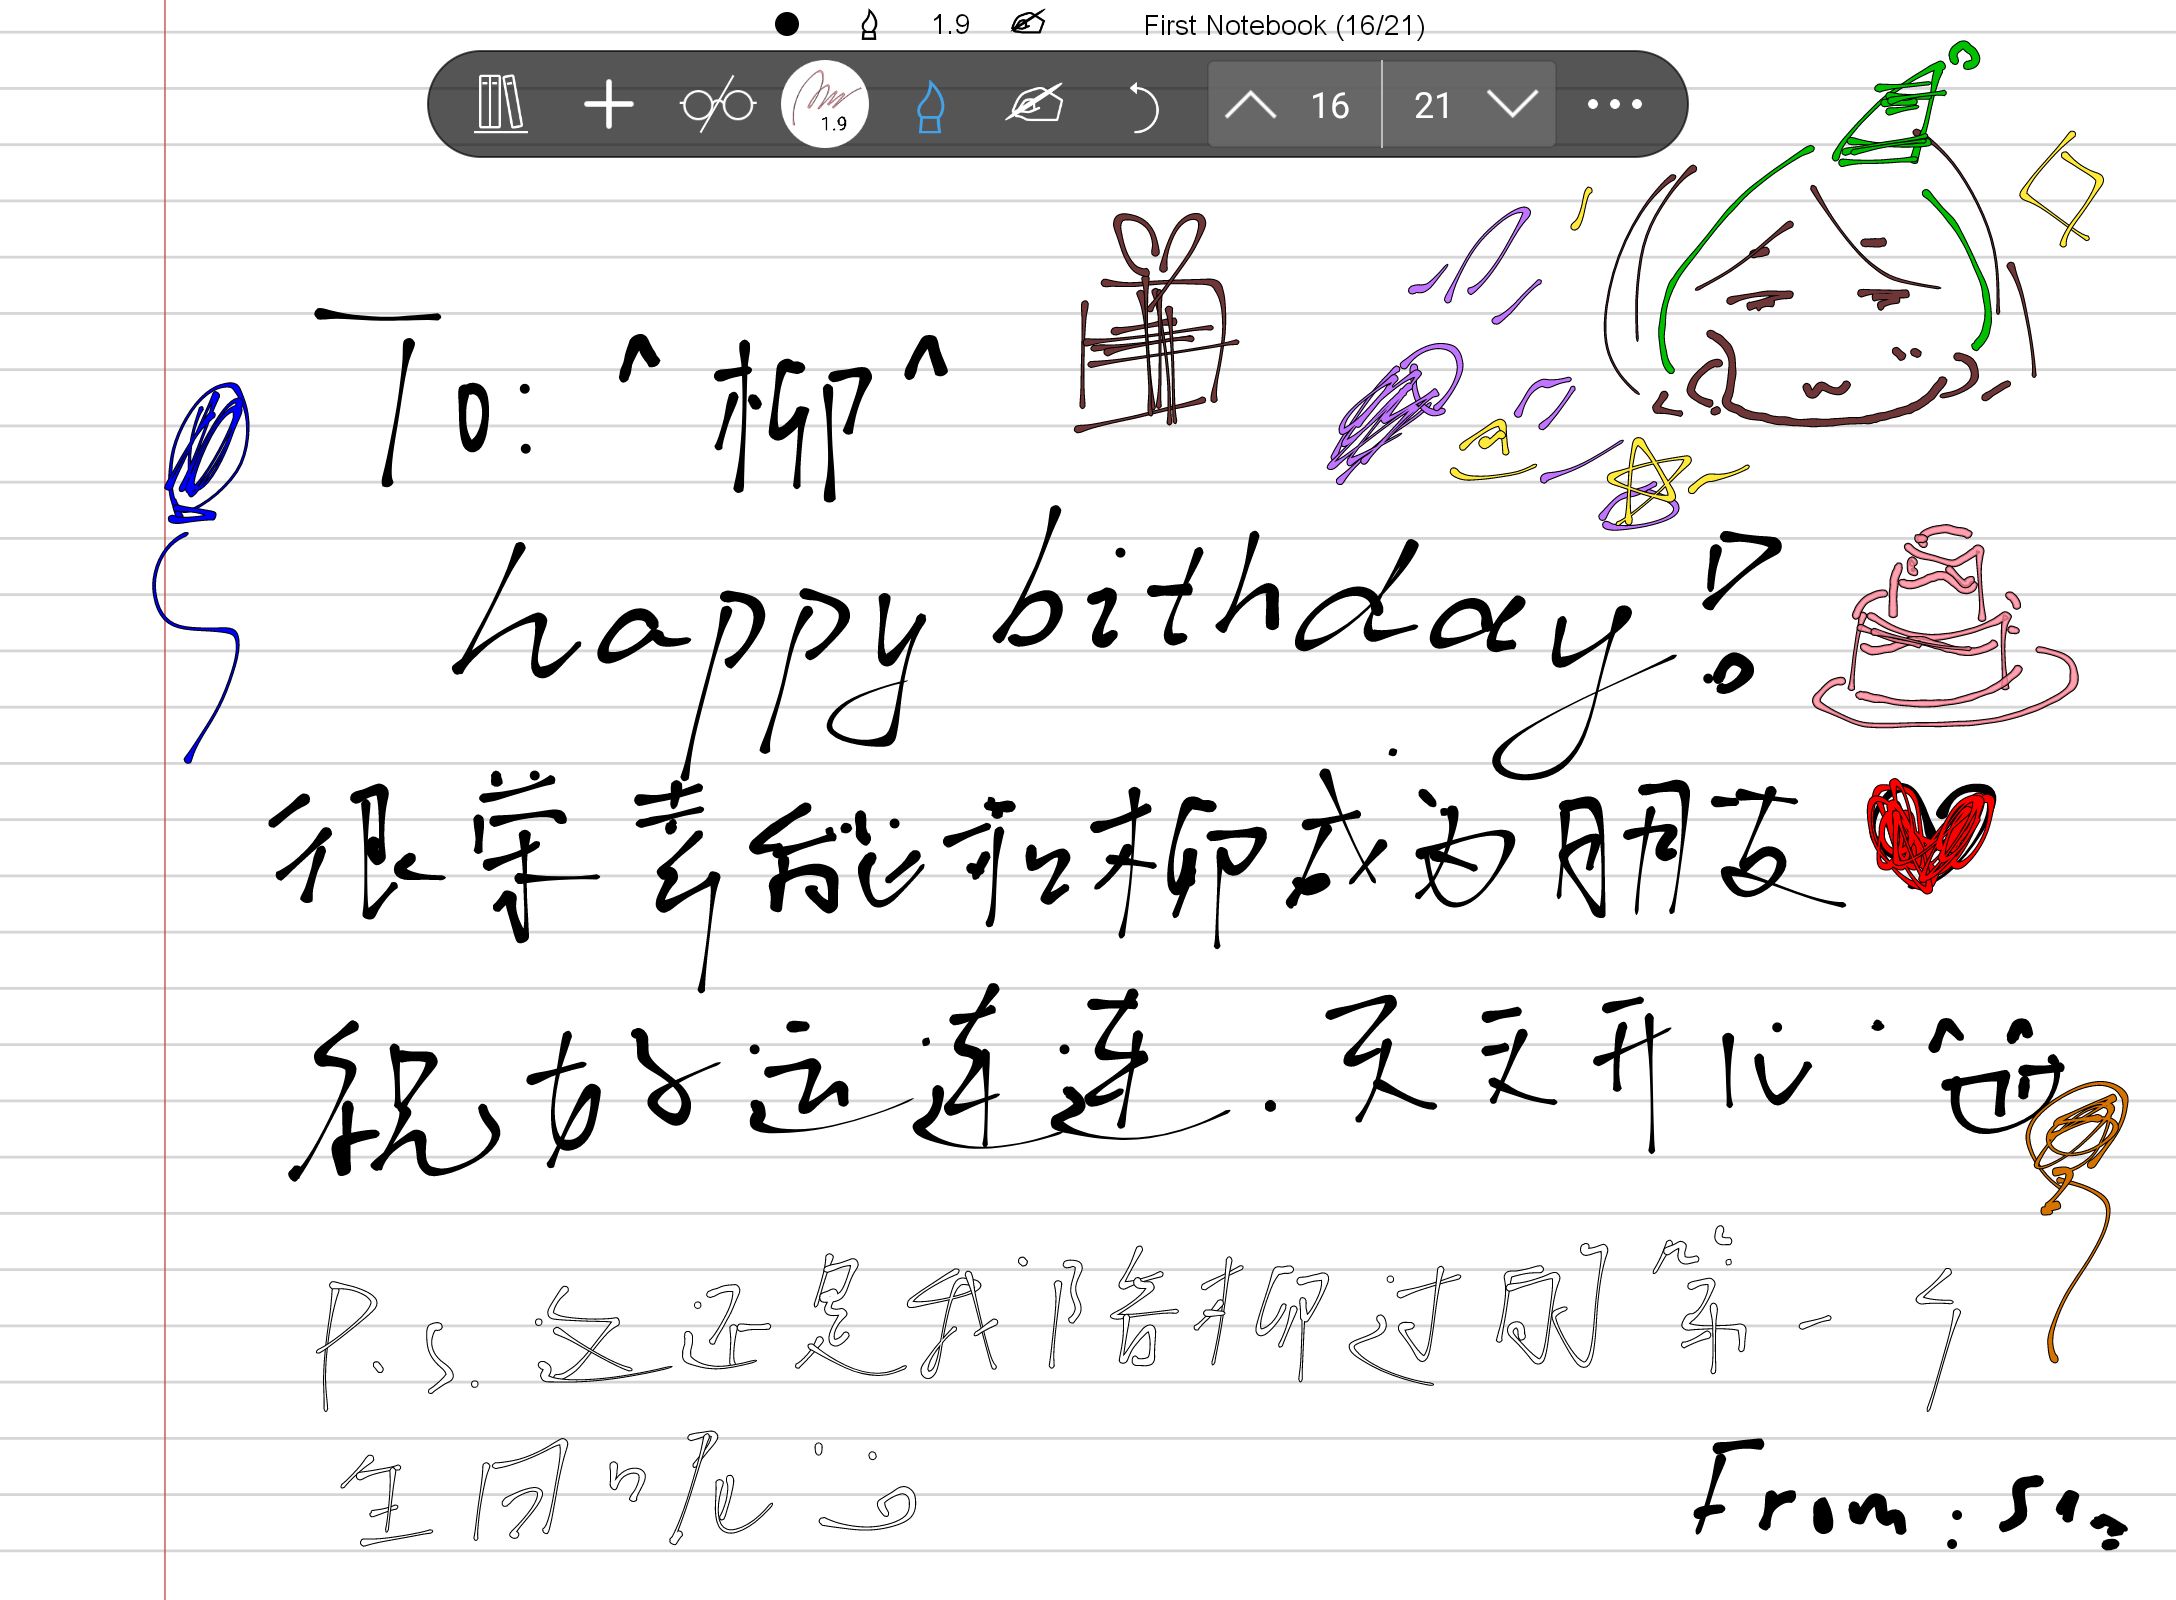 1.9 First Notebook (16/21)
1.9 16 21
To: ^柳^
happy bithday!
很荣幸能和柳成为朋友
祝好运连连.天天开心
P.s.这还是我陪柳过的第一个
生日呢
From: